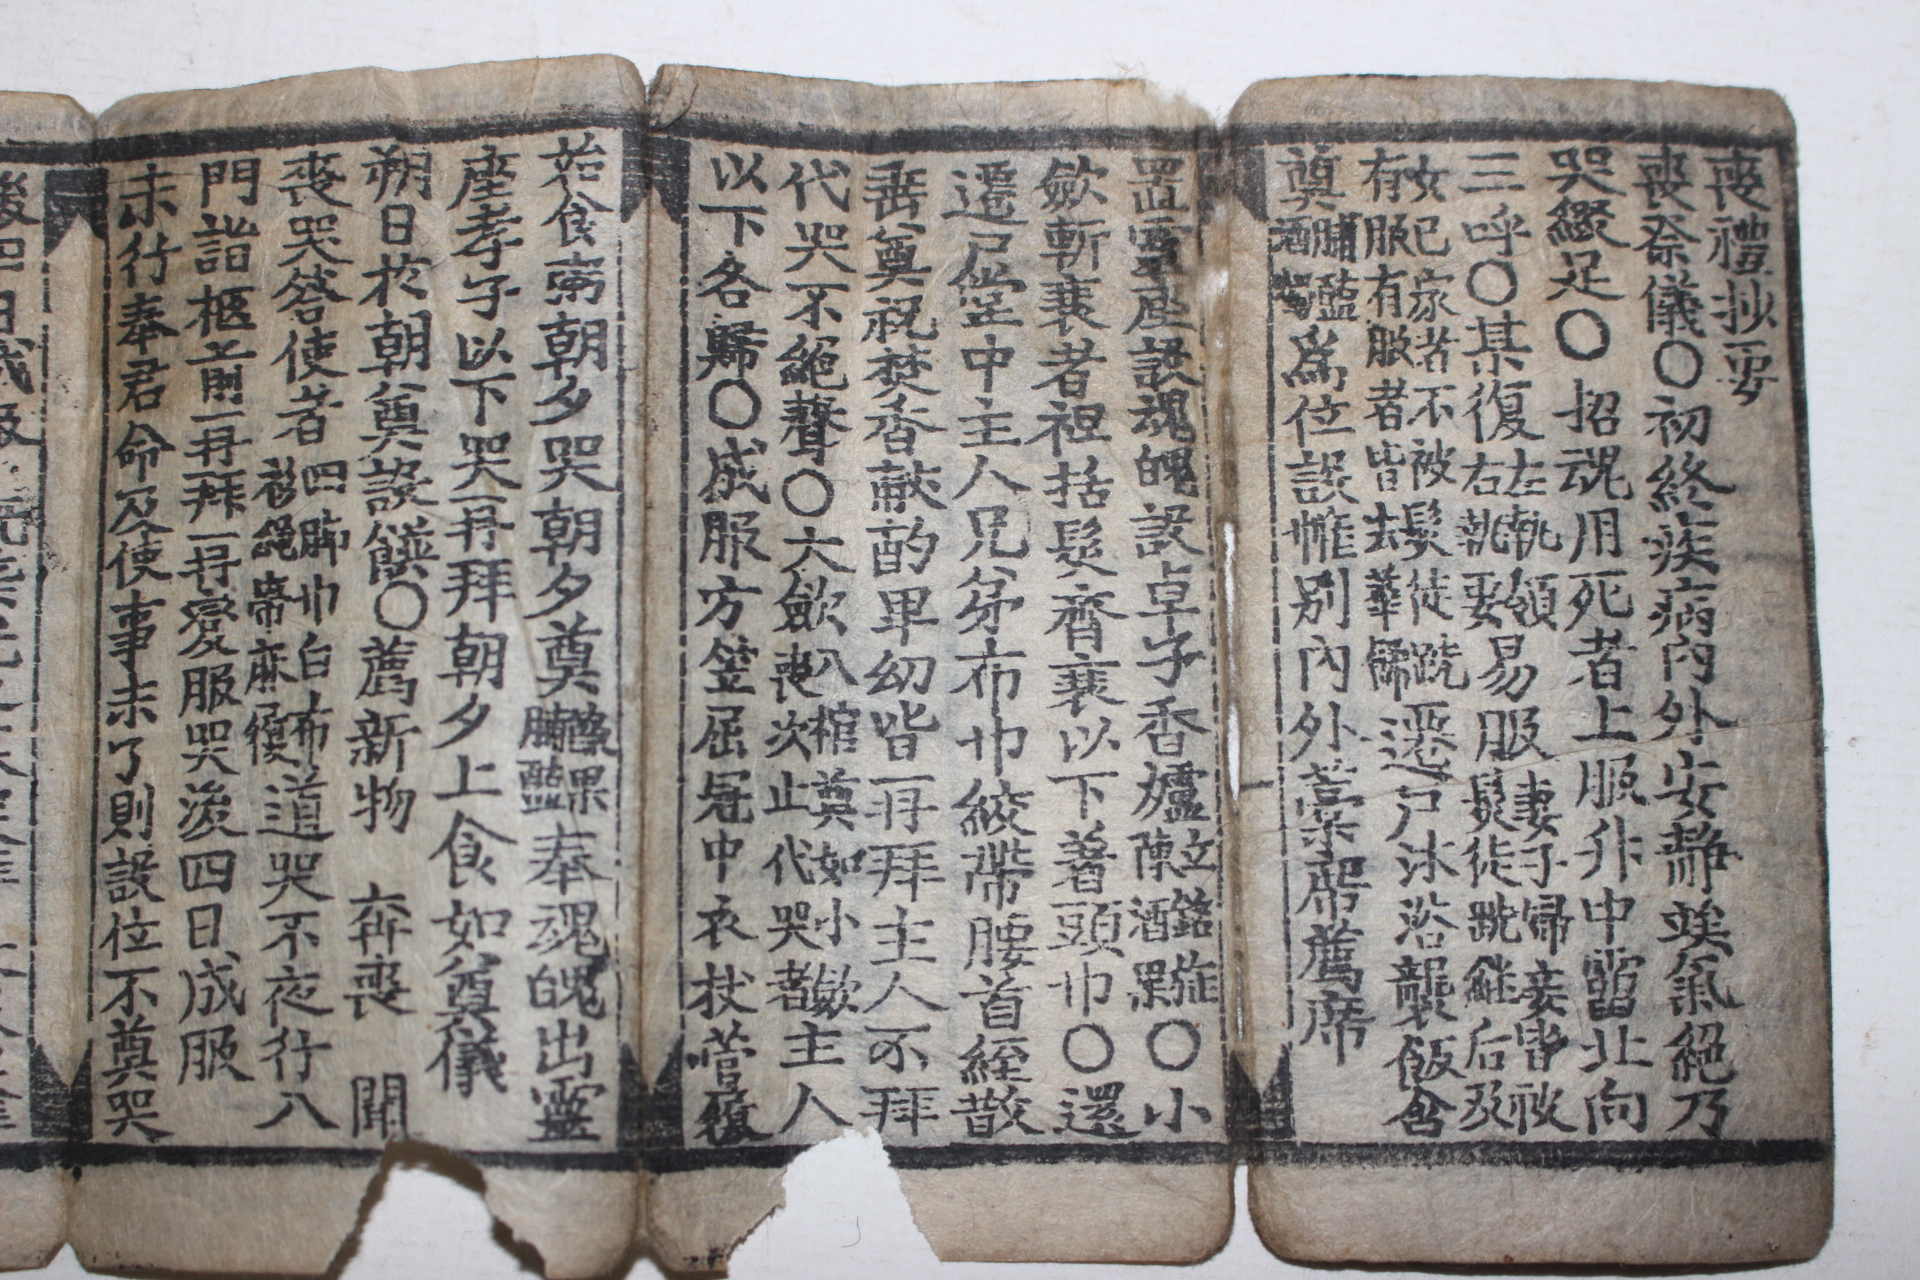 喪禮抄要
喪祭儀〇初終疾病內外安靜竢氣絕乃
哭綴足〇招魂用死者上服升中霤北向
三呼〇某復左執領右執要易服妻子婦妾皆被髮徒跣維后及
女已家者不被髮徒跣有服有服者皆去華飾遷尸沐浴襲飯含
奠脯醢酒爲位設帷別內外藁席薦席
置靈座設魂魄設卓子香爐立銘旌陳酒果〇小
斂斬衰者袒括髮齊衰以下着頭巾〇還
遷尸堂中主人兄弟布巾絞帶腰首絰散
垂奠祝焚香献酌卑幼皆再拜主人不拜
代哭不絕聲〇大斂喪次入棺奠如小斂止代哭者主人
以下各歸〇成服方笠屈冠中衣杖菅屨
始食粥朝夕哭朝夕奠蔬果脯醢奉魂魄出靈
座孝子以下哭再拜朝夕上食如奠儀
朔日於朝奠設饌〇薦新物 奔喪 聞
喪哭答使者四脚巾白布衫繩帶麻屨道哭不夜行入
門詣柩前再拜再變服哭後四日成服
未行奉君命及使事未了則設位不奠哭
後四日成服